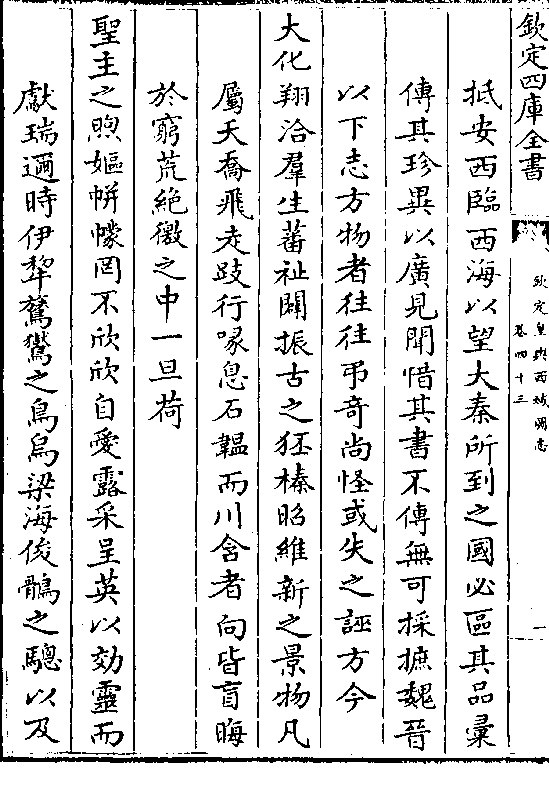 欽定四庫全書
欽定皇輿西域圖志
卷四十三
一
抵安西臨西海以望大秦所到之國必區其品彙
傳其珍異以廣見聞惜其書不傳無可採摭魏晉
以下志方物者往往弔奇尚怪或失之誣方今
大化翔洽羣生蕃祉闢振古之狉榛昭維新之景物凡
屬夭喬飛走跂行喙息石韞而川含者向皆盲晦
於窮荒絶徼之中一旦荷
聖主之煦嫗帡幪罔不欣欣自愛露采呈英以効靈而
獻瑞邇時伊犂鶖鷔之鳥烏梁海俊鶻之驄以及